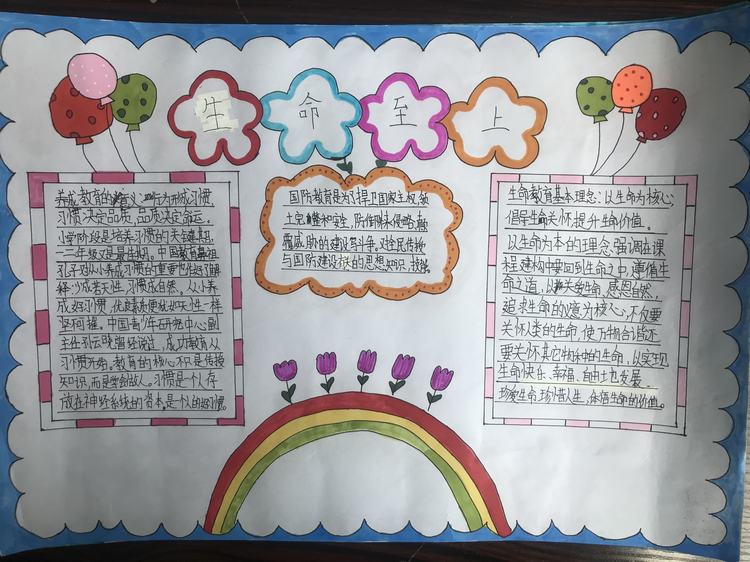 生命至上
养成教育的意义:行为形成习惯,
习惯决定品质,品质决定命运。
小学阶段是培养习惯的关键期,
一二年级又是最佳期。中国教育鼻祖
孔子对从小养成习惯的重要性也了解
解:少成若天性,习惯成自然。从小养
成好习惯,优良素质便犹如天性一样
坚
中国青少年研究中心副
主任孙云晓曾经说过,成功教育从
习惯开始。教育的核心不只是传授
知识,而是学会做人。习惯是一个人存
放在神经系统的资本,是个人的好习惯。
国防教育是为了捍卫国家主权、领
土完整和安全,防
侵略、
覆威胁的建设与斗争。对
民传授
与国防建设
的思想、知识、技能。
生命教育基本理念:以生命为核心;
倡导生命关怀,提升生命价值。
以生命为本的理念,强调在课
程建构中要回到生命之中,遵循生命
之道,以
关爱生命、感恩自然、
追求生命的意
为核心,不仅要
关怀人类的生命,使万物合
还
要关怀其它物体中的生命,以实现
生命快乐、幸福、自由也发展
珍爱生命,珍惜人生,体
生命的价值。